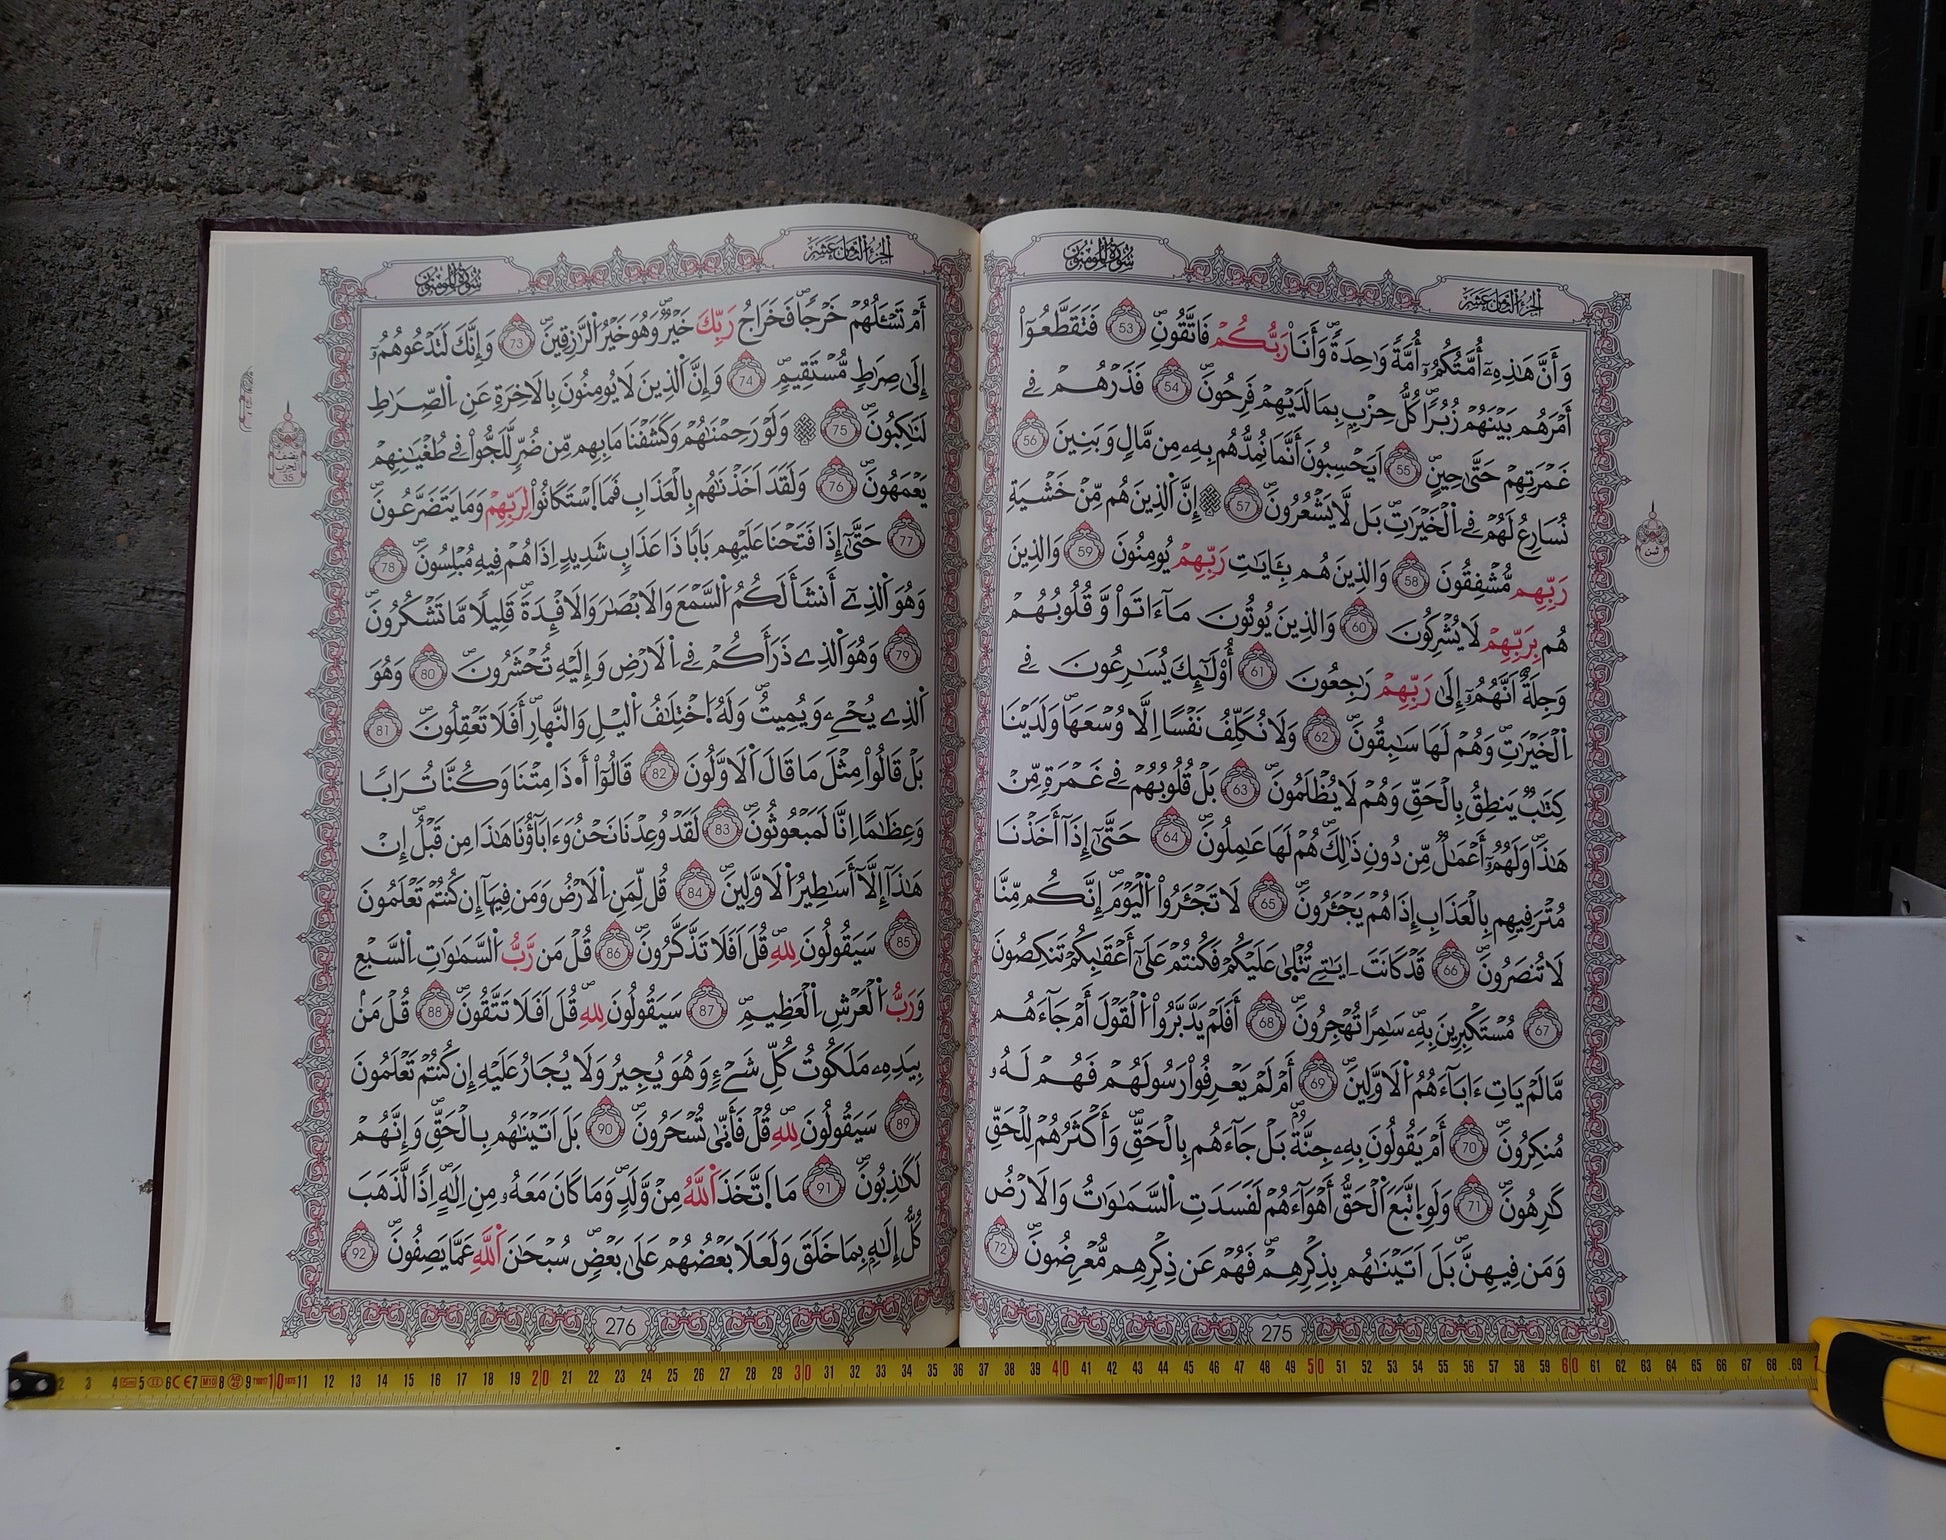 سُورَةُ الْمُؤْمِنُونَ
الْجُزْءُ الثَّامِنَ عَشَرَ
وَأَنَّ هَٰذِهِۦٓ أُمَّتُكُمُۥٓ أُمَّةً وَٰحِدَةً وَأَنَا رَبُّكُمْ فَاتَّقُونِ 53 فَتَقَطَّعُوٓاْ
أَمْرَهُم بَيْنَهُمْ زُبُرًا كُلُّ حِزْبٍۭ بِمَا لَدَيْهِمْ فَرِحُونَ 54 فَذَرْهُمْ فِے
غَمْرَتِهِمْ حَتَّىٰ حِينٍ 55 اَيَحْسِبُونَ أَنَّمَا نُمِدُّهُم بِهِۦ مِن مَّالٍ وَبَنِينَ 56
نُسَارِعُ لَهُمْ فِے اِ۬لْخَيْرَٰتِ بَل لَّا يَشْعُرُونَ 57 ۞ إِنَّ اَ۬لذِينَ هُم مِّنْ خَشْيَةِ
رَبِّهِم مُّشْفِقُونَ 58 وَالذِينَ هُم بِـَٔايَٰتِ رَبِّهِمْ يُومِنُونَ 59 وَالذِينَ
هُم بِرَبِّهِمْ لَا يُشْرِكُونَ 60 وَالذِينَ يُوتُونَ مَآ ءَاتَواْ وَّقُلُوبُهُمْ
وَجِلَةٌ اَنَّهُمُۥٓ إِلَىٰ رَبِّهِمْ رَٰجِعُونَ 61 أُوْلَٰٓئِكَ يُسَٰرِعُونَ فِے
اِ۬لْخَيْرَٰتِ وَهُمْ لَهَا سَٰبِقُونَ 62 وَلَا نُكَلِّفُ نَفْسًا اِلَّا وُسْعَهَا وَلَدَيْنَا
كِتَٰبٌ يَنطِقُ بِالْحَقِّ وَهُمْ لَا يُظْلَمُونَ 63 بَلْ قُلُوبُهُمْ فِے غَمْرَةٍ مِّنْ
هَٰذَا وَلَهُمُۥٓ أَعْمَٰلٌ مِّن دُونِ ذَٰلِكَ هُمْ لَهَا عَٰمِلُونَ 64 حَتَّىٰٓ إِذَآ أَخَذْنَا
مُتْرَفِيهِم بِالْعَذَابِ إِذَا هُمْ يَجْـَٔرُونَ 65 لَا تَجْـَٔرُواْ اُ۬لْيَوْمَ إِنَّكُم مِّنَّا
لَا تُنصَرُونَ 66 قَدْ كَانَتَ اٰيَٰتِے تُتْلَىٰ عَلَيْكُمْ فَكُنتُمْ عَلَىٰٓ أَعْقَٰبِكُمْ تَنكِصُونَ
67 مُسْتَكْبِرِينَ بِهِۦ سَٰمِرًا تُهْجِرُونَ 68 أَفَلَمْ يَدَّبَّرُواْ اُ۬لْقَوْلَ أَمْ جَآءَهُم
مَّا لَمْ يَاتِ ءَابَآءَهُمُ اُ۬لَاوَّلِينَ 69 أَمْ لَمْ يَعْرِفُواْ رَسُولَهُمْ فَهُمْ لَهُۥ
مُنكِرُونَ 70 أَمْ يَقُولُونَ بِهِۦ جِنَّةٌ بَلْ جَآءَهُم بِالْحَقِّ وَأَكْثَرُهُمْ لِلْحَقِّ
كَٰرِهُونَ 71 وَلَوِ اِ۪تَّبَعَ اَ۬لْحَقُّ أَهْوَآءَهُمْ لَفَسَدَتِ اِ۬لسَّمَٰوَٰتُ وَالَارْضُ
وَمَن فِيهِنَّ بَلَ اَتَيْنَٰهُم بِذِكْرِهِمْ فَهُمْ عَن ذِكْرِهِم مُّعْرِضُونَ 72
ثمن
275
الْجُزْءُ الثَّامِنَ عَشَرَ
سُورَةُ الْمُؤْمِنُونَ
أَمْ تَسْـَٔلُهُمْ خَرْجًا فَخَرَاجُ رَبِّكَ خَيْرٌ وَهُوَ خَيْرُ اُ۬لرَّٰزِقِينَ 73 وَإِنَّكَ لَتَدْعُوهُمُۥٓ
إِلَىٰ صِرَٰطٍ مُّسْتَقِيمٍ 74 وَإِنَّ اَ۬لذِينَ لَا يُومِنُونَ بِالَاخِرَةِ عَنِ اِ۬لصِّرَٰطِ
لَنَٰكِبُونَ 75 ۞ وَلَوْ رَحِمْنَٰهُمْ وَكَشَفْنَا مَا بِهِم مِّن ضُرٍّ لَّلَجُّواْ فِے طُغْيَٰنِهِمْ
يَعْمَهُونَ 76 وَلَقَدَ اَخَذْنَٰهُم بِالْعَذَابِ فَمَا اَ۪سْتَكَانُواْ لِرَبِّهِمْ وَمَا يَتَضَرَّعُونَ
77 حَتَّىٰٓ إِذَا فَتَحْنَا عَلَيْهِم بَابًا ذَا عَذَابٍ شَدِيدٍ اِذَا هُمْ فِيهِ مُبْلِسُونَ 78
وَهُوَ اَ۬لذِےٓ أَنشَأَ لَكُمُ اُ۬لسَّمْعَ وَالَابْصَٰرَ وَالَافْـِٕدَةَ قَلِيلًا مَّا تَشْكُرُونَ
79 وَهُوَ اَ۬لذِے ذَرَأَكُمْ فِے اِ۬لَارْضِ وَإِلَيْهِ تُحْشَرُونَ 80 وَهُوَ
اَ۬لذِے يُحْيِۦ وَيُمِيتُ وَلَهُ اُ۪خْتِلَٰفُ اُ۬ليْلِ وَالنَّهٰارِ أَفَلَا تَعْقِلُونَ 81
بَلْ قَالُواْ مِثْلَ مَا قَالَ اَ۬لَاوَّلُونَ 82 قَالُوٓاْ أَ.ذَا مِتْنَا وَكُنَّا تُرَابًا
وَعِظَٰمًا اِنَّا لَمَبْعُوثُونَ 83 لَقَدْ وُعِدْنَا نَحْنُ وَءَابَآؤُنَا هَٰذَا مِن قَبْلُ إِنْ
هَٰذَآ إِلَّآ أَسَٰطِيرُ اُ۬لَاوَّلِينَ 84 قُل لِّمَنِ اِ۬لَارْضُ وَمَن فِيهَآ إِن كُنتُمْ تَعْلَمُونَ
85 سَيَقُولُونَ لِلهِ قُلَ اَفَلَا تَذَّكَّرُونَ 86 قُلْ مَن رَّبُّ اُ۬لسَّمَٰوَٰتِ اِ۬لسَّبْعِ
وَرَبُّ اُ۬لْعَرْشِ اِ۬لْعَظِيمِ 87 سَيَقُولُونَ لِلهِ قُلَ اَفَلَا تَتَّقُونَ 88 قُلْ مَنۢ
بِيَدِهِۦ مَلَكُوتُ كُلِّ شَےْءٍ وَهُوَ يُجِيرُ وَلَا يُجَارُ عَلَيْهِ إِن كُنتُمْ تَعْلَمُونَ
89 سَيَقُولُونَ لِلهِ قُلْ فَأَنَّىٰ تُسْحَرُونَ 90 بَلَ اَتَيْنَٰهُم بِالْحَقِّ وَإِنَّهُمْ
لَكَٰذِبُونَ 91 مَا اَ۪تَّخَذَ اَ۬للَّهُ مِنْ وَّلَدٍ وَمَا كَانَ مَعَهُۥ مِنِ اِلَٰهٍ اِذًا لَّذَهَبَ
كُلُّ إِلَٰهٍۭ بِمَا خَلَقَ وَلَعَلَا بَعْضُهُمْ عَلَىٰ بَعْضٍ سُبْحَٰنَ اَ۬للَّهِ عَمَّا يَصِفُونَ 92
نصف
الحزب
35
276
2 3 4 5 6 7 8 9 10 11 12 13 14 15 16 17 18 19 20 21 22 23 24 25 26 27 28 29 30 31 32 33 34 35 36 37 38 39 40 41 42 43 44 45 46 47 48 49 50 51 52 53 54 55 56 57 58 59 60 61 62 63 64 65 66 67 68 69